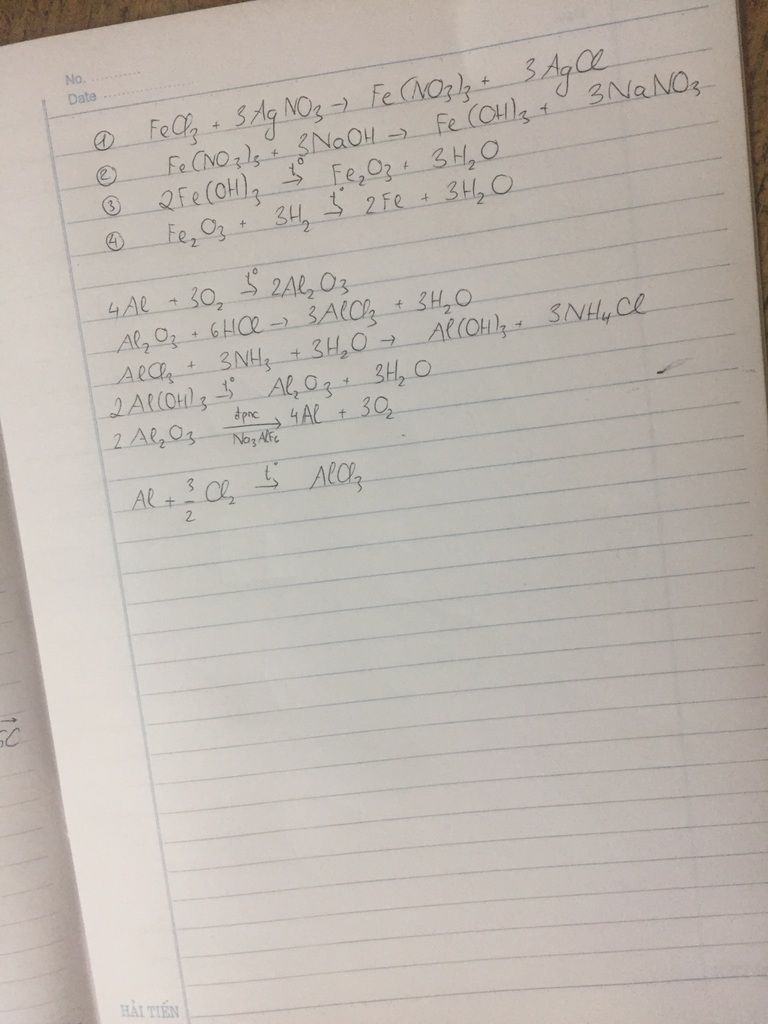 No. ............
Date ........................
① FeCl₃ + 3AgNO₃ → Fe(NO₃)₃ + 3AgCl
② Fe(NO₃)₃ + 3NaOH → Fe(OH)₃ + 3NaNO₃
③ 2Fe(OH)₃ →(t°) Fe₂O₃ + 3H₂O
④ Fe₂O₃ + 3H₂ →(t°) 2Fe + 3H₂O
4Al + 3O₂ →(t°) 2Al₂O₃
Al₂O₃ + 6HCl → 3AlCl₃ + 3H₂O
AlCl₃ + 3NH₃ + 3H₂O → Al(OH)₃ + 3NH₄Cl
2Al(OH)₃ →(t°) Al₂O₃ + 3H₂O
2Al₂O₃ →(đpnc / Na₃AlF₆) 4Al + 3O₂
Al + 3/2 Cl₂ →(t°) AlCl₃
HẢI TIẾN